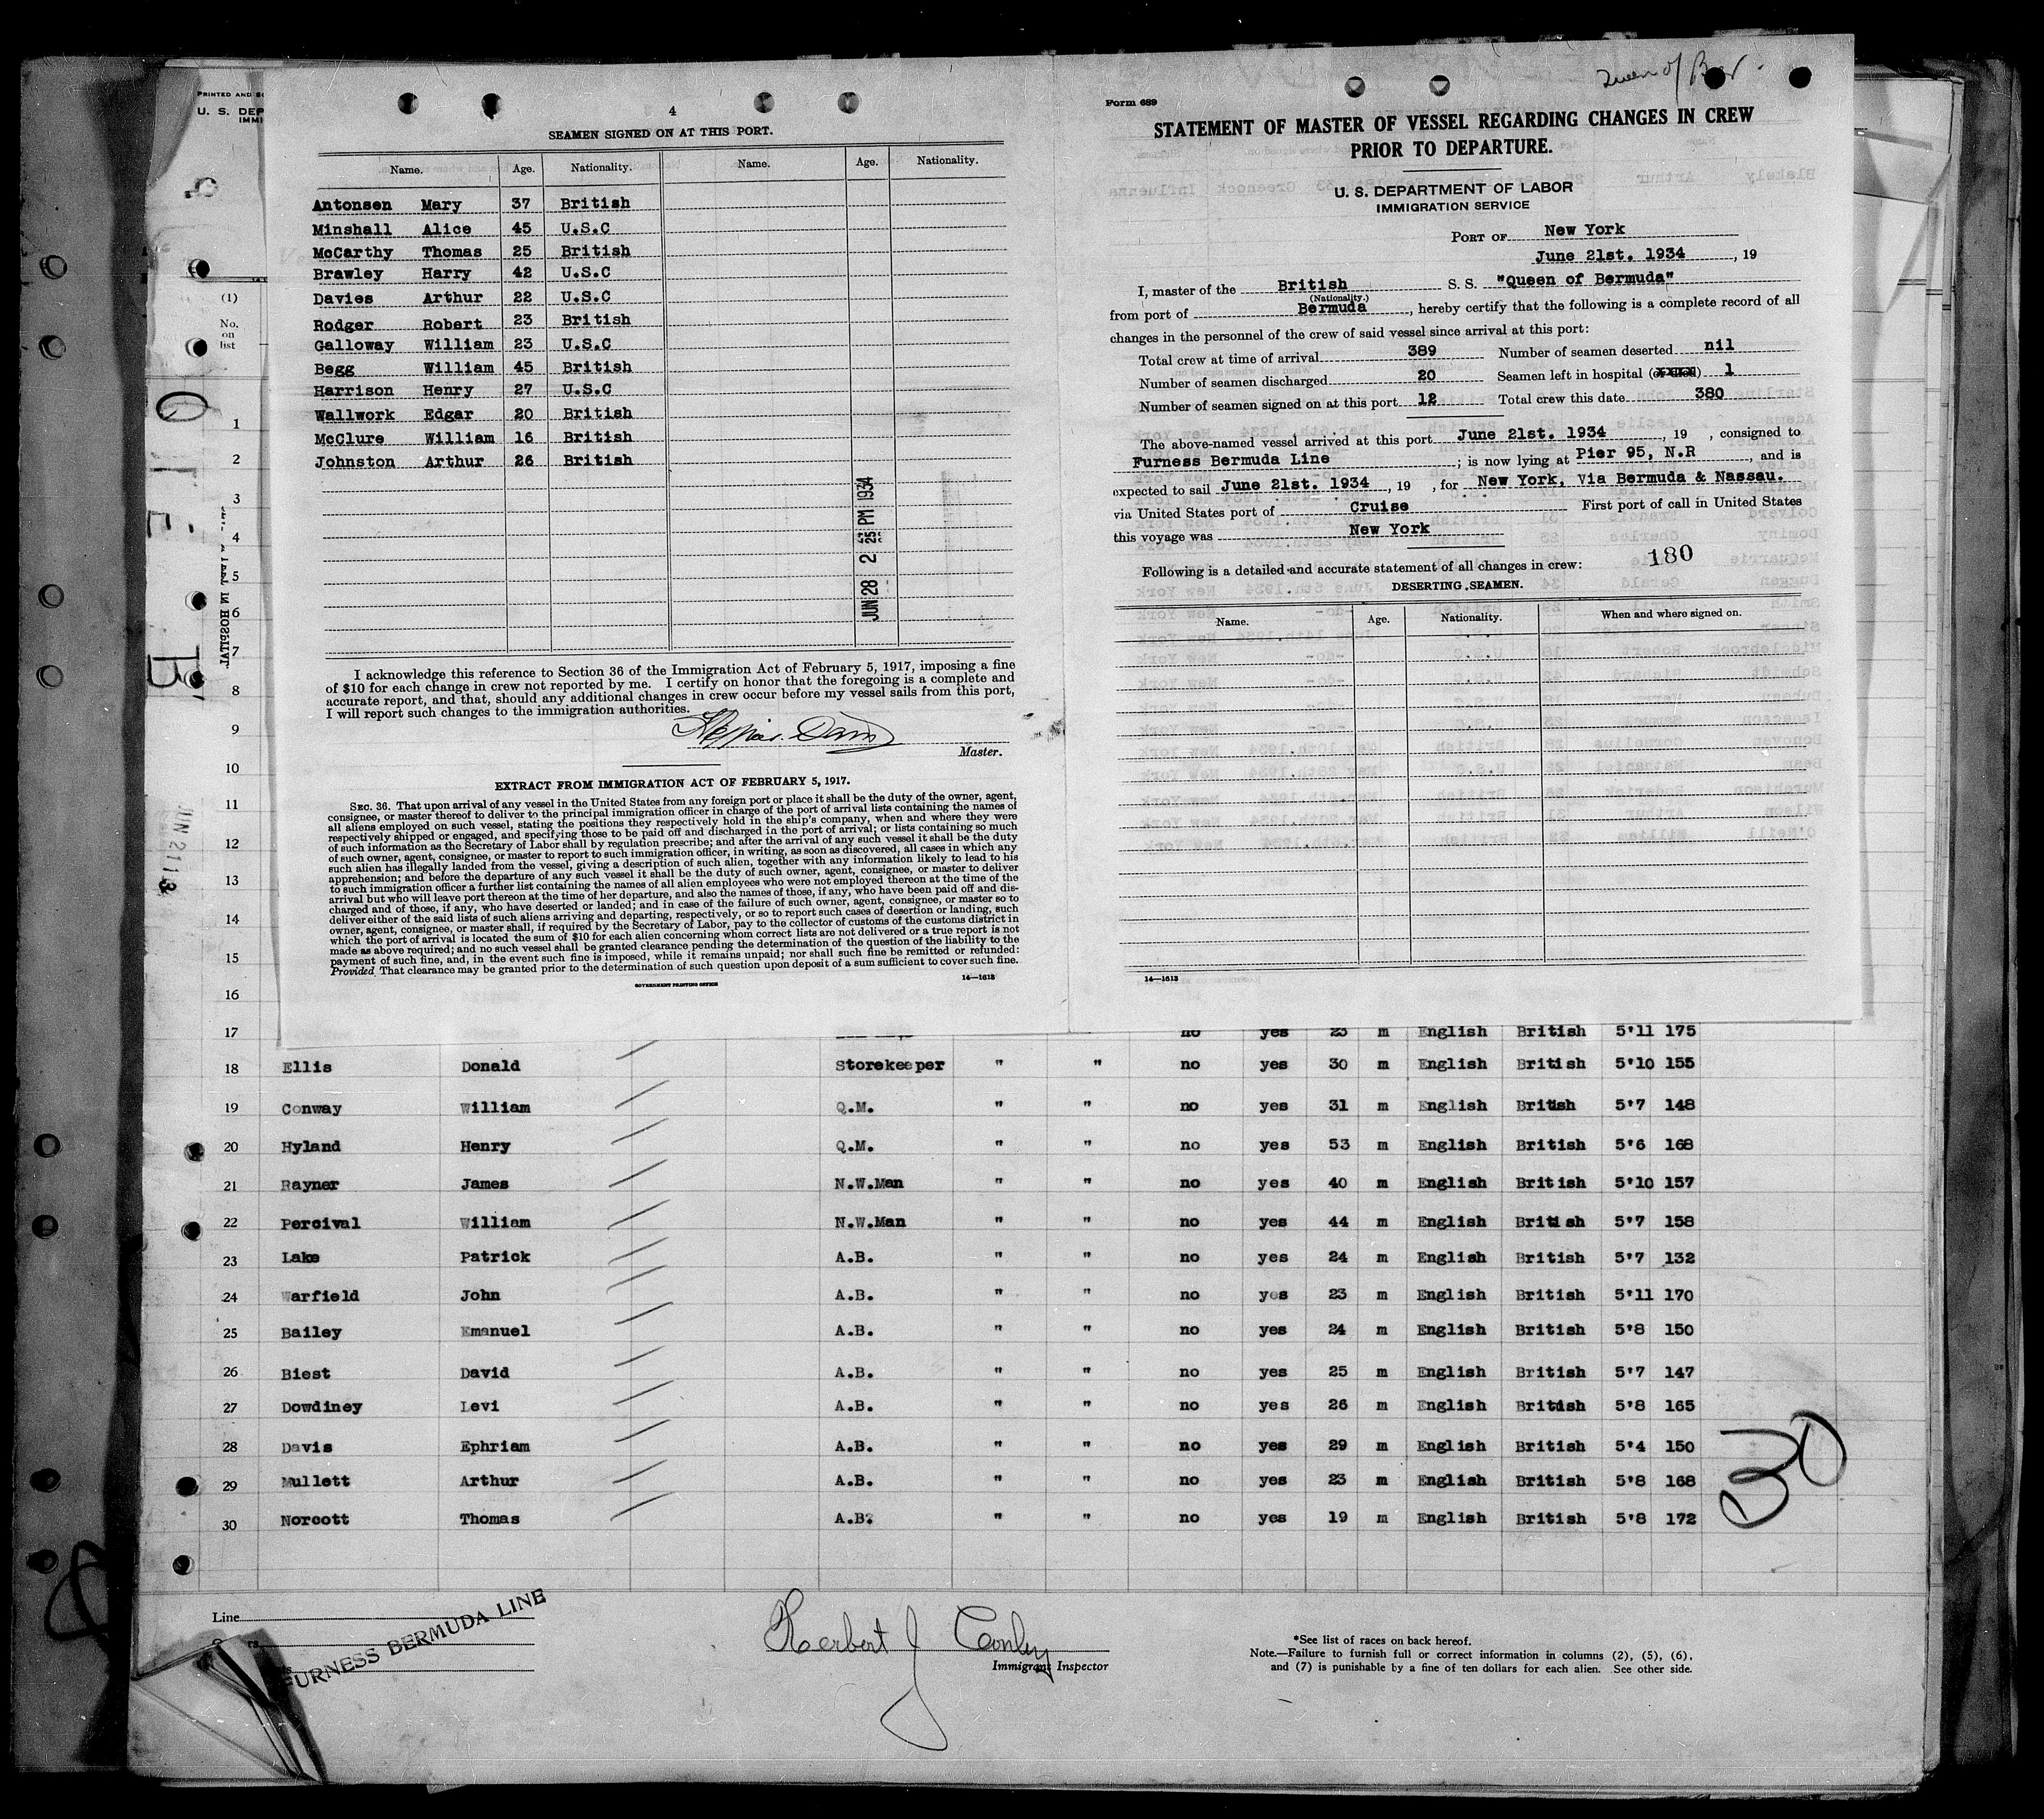 4
SEAMEN SIGNED ON AT THIS PORT.
Name. Age. Nationality. Name. Age. Nationality.
Antonsen Mary 37 British
Minshall Alice 45 U.S.C
McCarthy Thomas 25 British
Brawley Harry 42 U.S.C
Davies Arthur 22 U.S.C
Rodger Robert 23 British
Galloway William 23 U.S.C
Begg William 45 British
Harrison Henry 27 U.S.C
Wallwork Edgar 20 British
McClure William 16 British
Johnston Arthur 26 British
JUN 28 2 25 PM 1934
I acknowledge this reference to Section 36 of the Immigration Act of February 5, 1917, imposing a fine
of $10 for each change in crew not reported by me. I certify on honor that the foregoing is a complete and
accurate report, and that, should any additional changes in crew occur before my vessel sails from this port,
I will report such changes to the immigration authorities.
Master.
EXTRACT FROM IMMIGRATION ACT OF FEBRUARY 5, 1917.
SEC. 36. That upon arrival of any vessel in the United States from any foreign port or place it shall be the duty of the owner, agent,
consignee, or master thereof to deliver to the principal immigration officer in charge of the port of arrival lists containing the names of
all aliens employed on such vessel, stating the positions they respectively hold in the ship's company, when and where they were
respectively shipped or engaged, and specifying those to be paid off and discharged in the port of arrival; or lists containing so much
of such information as the Secretary of Labor shall by regulation prescribe; and after the arrival of any such vessel it shall be the duty
of such owner, agent, consignee, or master to report to such immigration officer, in writing, as soon as discovered, all cases in which any
such alien has illegally landed from the vessel, giving a description of such alien, together with any information likely to lead to his
apprehension; and before the departure of any such vessel it shall be the duty of such owner, agent, consignee, or master to deliver
to such immigration officer a further list containing the names of all alien employees who were not employed thereon at the time of the
arrival but who will leave port thereon at the time of her departure, and also the names of those, if any, who have been paid off and dis-
charged and of those, if any, who have deserted or landed; and in case of the failure of such owner, agent, consignee, or master so to
deliver either of the said lists of such aliens arriving and departing, respectively, or so to report such cases of desertion or landing, such
owner, agent, consignee, or master shall, if required by the Secretary of Labor, pay to the collector of customs of the customs district in
which the port of arrival is located the sum of $10 for each alien concerning whom correct lists are not delivered or a true report is not
made as above required; and no such vessel shall be granted clearance pending the determination of the question of the liability to the
payment of such fine, and, in the event such fine is imposed, while it remains unpaid; nor shall such fine be remitted or refunded:
Provided, That clearance may be granted prior to the determination of such question upon deposit of a sum sufficient to cover such fine.
GOVERNMENT PRINTING OFFICE 14—1613
Queen of Ber.
Form 689
STATEMENT OF MASTER OF VESSEL REGARDING CHANGES IN CREW
PRIOR TO DEPARTURE.
U. S. DEPARTMENT OF LABOR
IMMIGRATION SERVICE
PORT OF New York
June 21st. 1934, 19
I, master of the British S. S. "Queen of Bermuda"
(Nationality.)
from port of Bermuda, hereby certify that the following is a complete record of all
changes in the personnel of the crew of said vessel since arrival at this port:
Total crew at time of arrival 389 Number of seamen deserted nil
Number of seamen discharged 20 Seamen left in hospital (or died) 1
Number of seamen signed on at this port 12 Total crew this date 380
The above-named vessel arrived at this port June 21st. 1934, 19 , consigned to
Furness Bermuda Line ; is now lying at Pier 95, N.R , and is
expected to sail June 21st. 1934, 19 , for New York, Via Bermuda & Nassau.
via United States port of Cruise First port of call in United States
this voyage was New York
180
Following is a detailed and accurate statement of all changes in crew:
DESERTING SEAMEN.
Name. Age. Nationality. When and where signed on.
14—1613
PRINTED AND
U. S. DEP
IMMI
(1)
No.
on
list
IN HOSPITAL.
1
2
3
4
5
6
7
8
9
10
11
12
13
14
15
16
17 no yes 23 m English British 5'11 175
18 Ellis Donald Storekeeper " " no yes 30 m English British 5'10 155
19 Conway William Q.M. " " no yes 31 m English British 5'7 148
20 Hyland Henry Q.M. " " no yes 53 m English British 5'6 168
21 Rayner James N.W.Man " " no yes 40 m English British 5'10 157
22 Percival William N.W.Man " " no yes 44 m English British 5'7 158
23 Lake Patrick A.B. " " no yes 24 m English British 5'7 132
24 Warfield John A.B. " " no yes 23 m English British 5'11 170
25 Bailey Emanuel A.B. " " no yes 24 m English British 5'8 150
26 Biest David A.B. " " no yes 25 m English British 5'7 147
27 Dowdiney Levi A.B. " " no yes 26 m English British 5'8 165
28 Davis Ephriam A.B. " " no yes 29 m English British 5'4 150
29 Mullett Arthur A.B. " " no yes 23 m English British 5'8 168
30 Norcott Thomas A.B? " " no yes 19 m English British 5'8 172
30
Line
FURNESS BERMUDA LINE
Herbert J Conley
Immigrant Inspector
*See list of races on back hereof.
Note.—Failure to furnish full or correct information in columns (2), (5), (6),
and (7) is punishable by a fine of ten dollars for each alien. See other side.